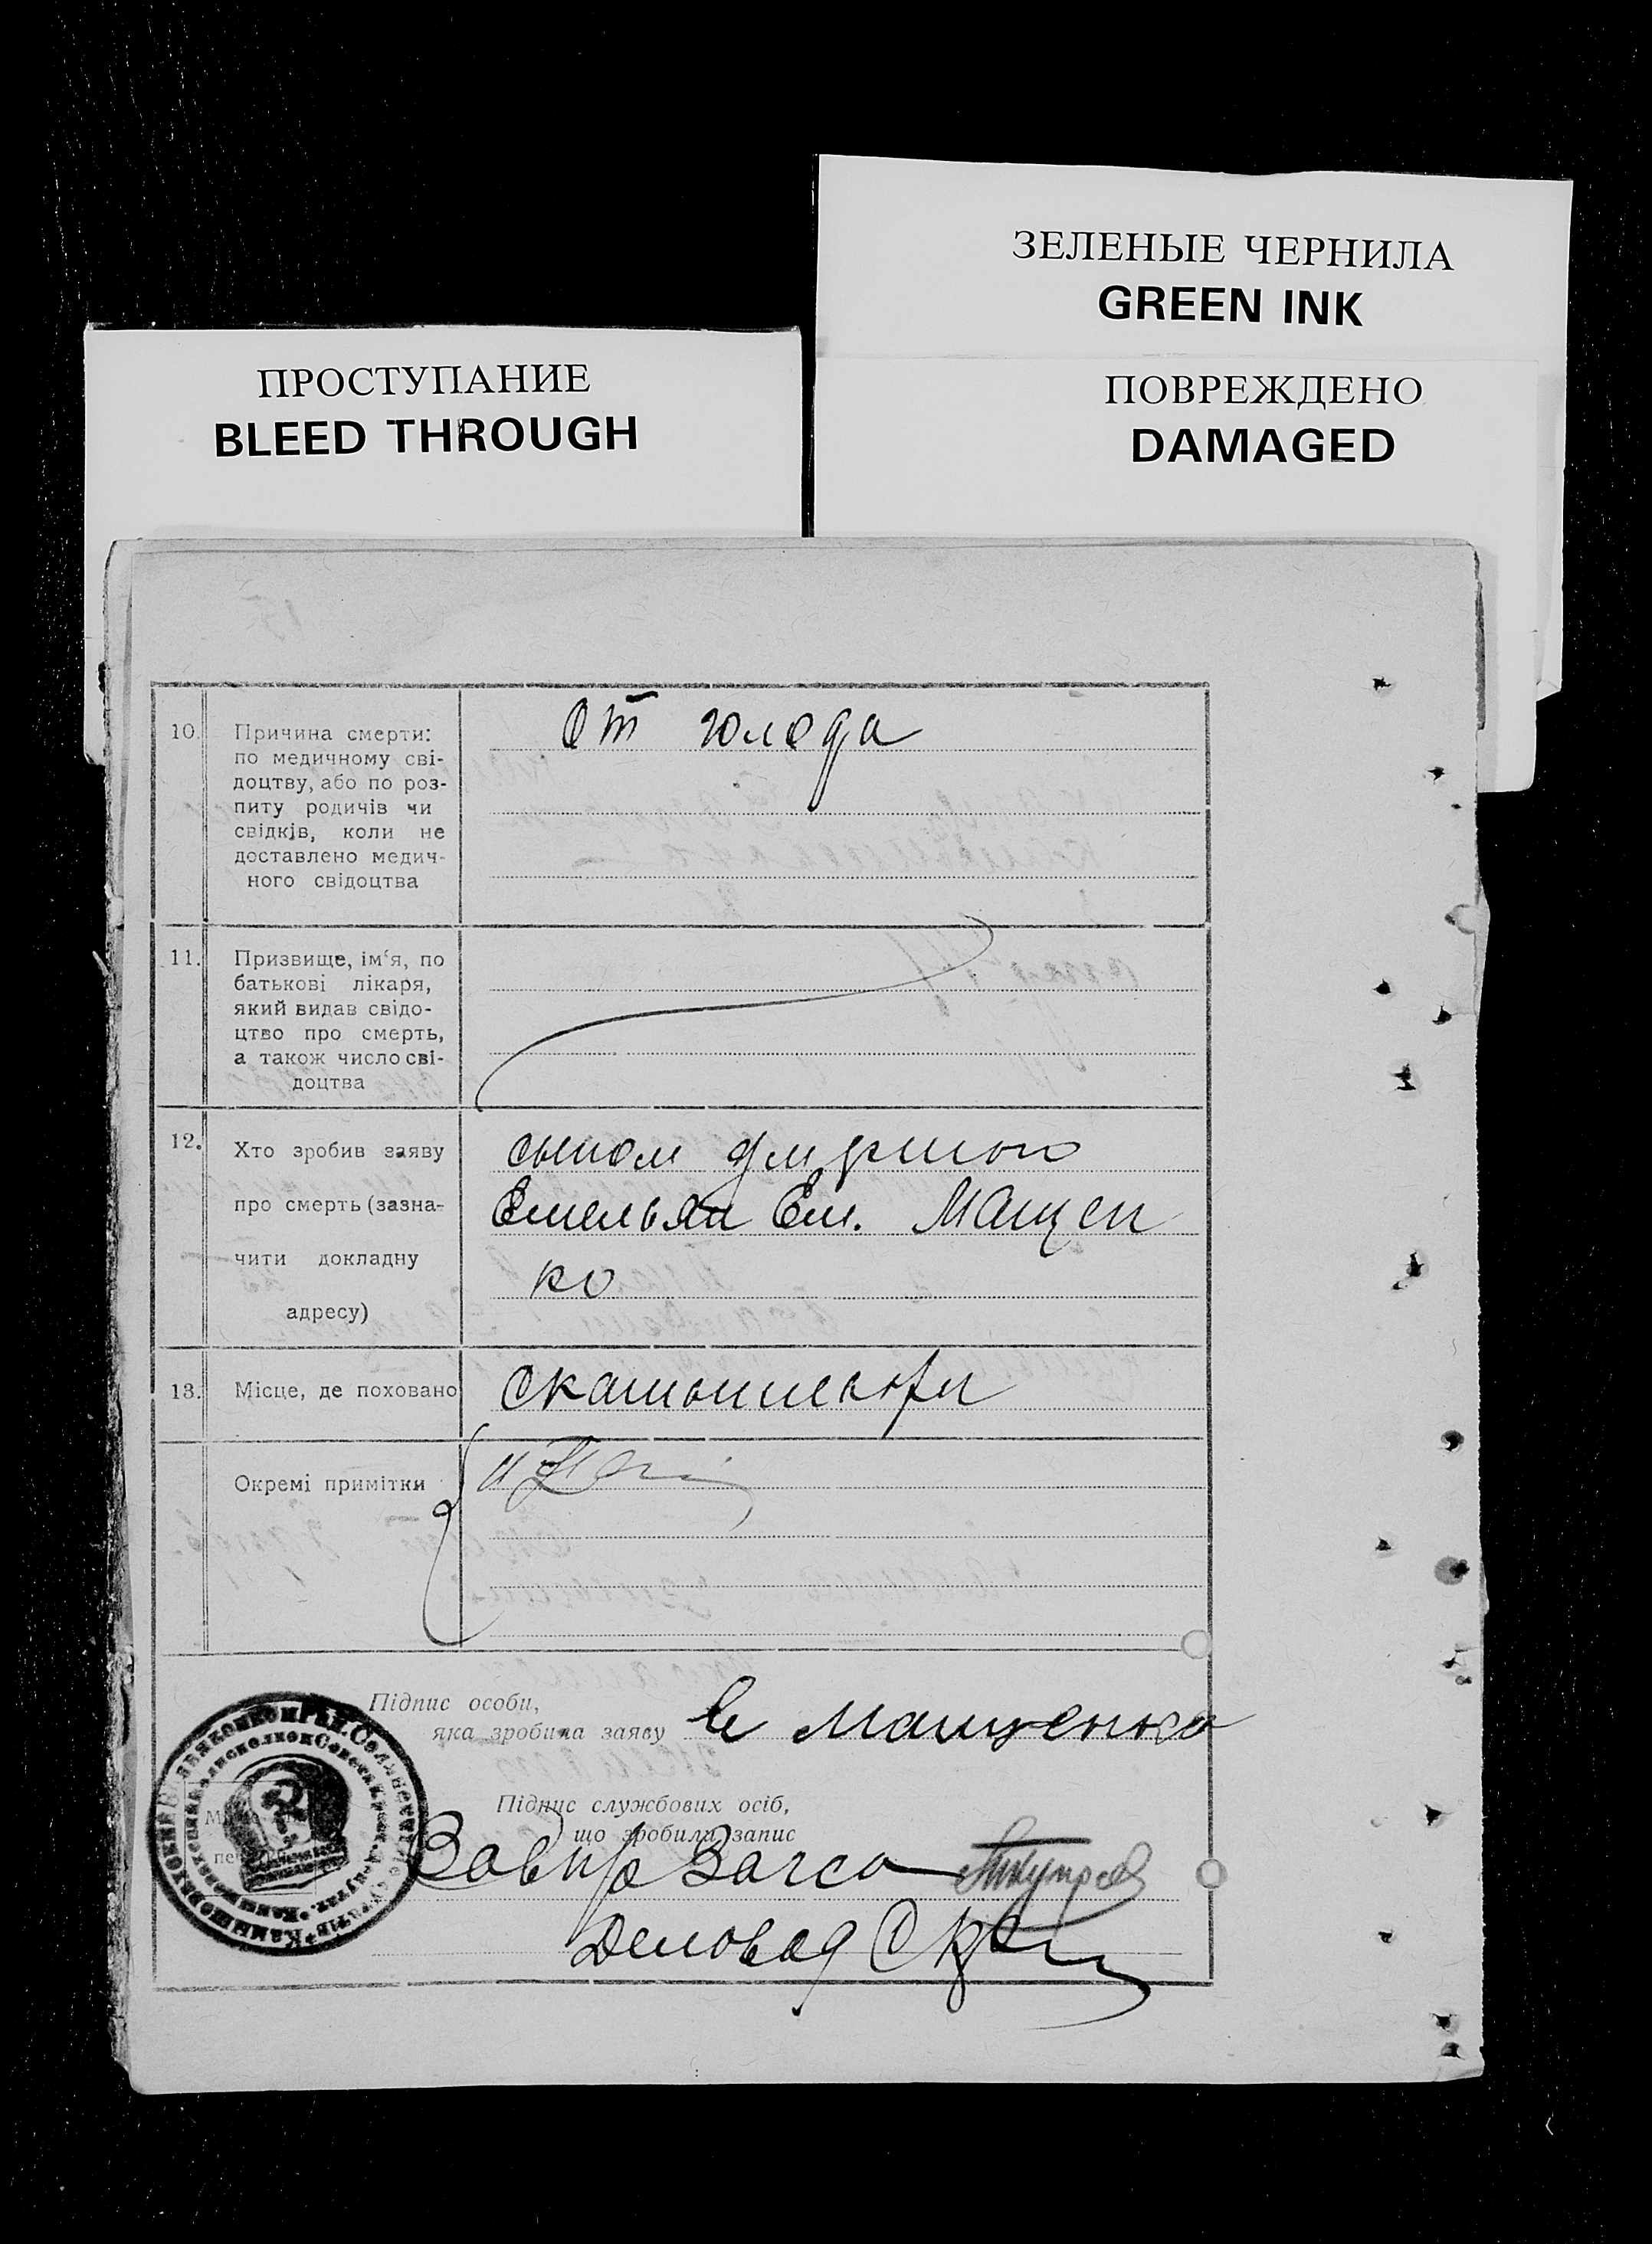 ЗЕЛЕНЫЕ ЧЕРНИЛА
GREEN INK
ПРОСТУПАНИЕ
BLEED THROUGH
ПОВРЕЖДЕНО
DAMAGED
10. Причина смерти: От голода
по медичному сві-
доцтву, або по роз-
питу родичів чи
свідків, коли не
доставлено медич-
ного свідоцтва
11. Призвище, ім‘я, по
батькові лікаря,
який видав свідо-
цтво про смерть,
а також число сві-
доцтва
12. Хто зробив заяву сыном
про смерть (зазна- Емельян Ем. Мащен
чити докладну ко
адресу)
13. Місце, де поховано
Окремі примітки
Підпис особи,
яка зробила заяву Мащенко
Підпис службових осіб,
що зробили запис
Загса
Деловод